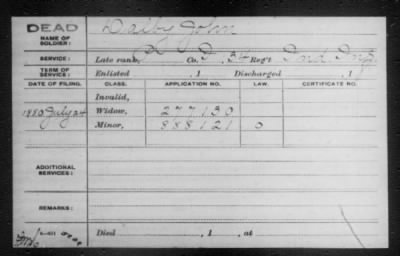 DEAD
NAME OF SOLDIER: Dailby John
SERVICE: Late rank, P Co. D, 34 Reg't Ind. Inf.
TERM OF SERVICE: Enlisted , 1 Discharged , 1
DATE OF FILING. CLASS. APPLICATION NO. LAW. CERTIFICATE NO.
Invalid,
1880 July 24 Widow, 277130
Minor, 888121 0
ADDITIONAL SERVICES:
REMARKS:
Died , 1 , at